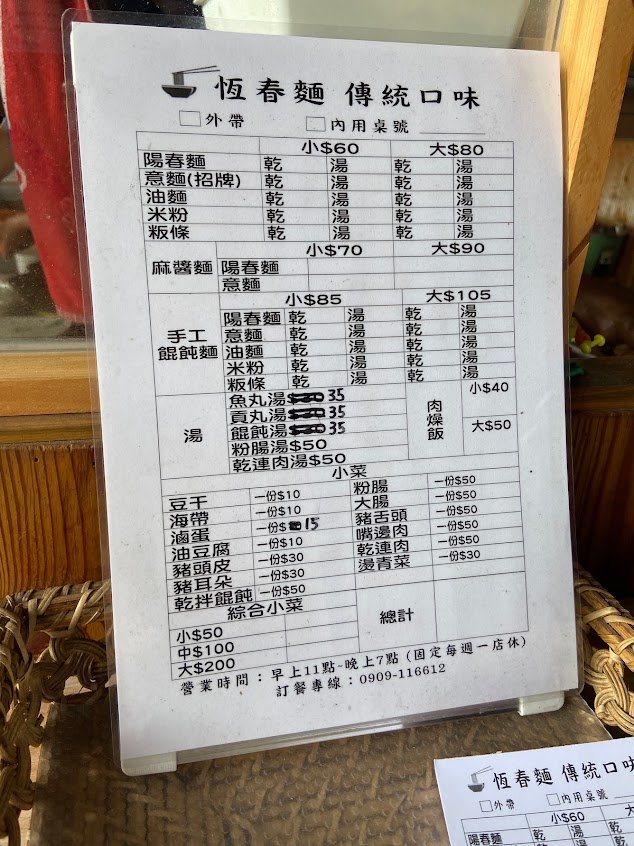 恆春麵 傳統口味
□外帶 □內用桌號
小$60 大$80
陽春麵 乾 湯 乾 湯
意麵(招牌) 乾 湯 乾 湯
油麵 乾 湯 乾 湯
米粉 乾 湯 乾 湯
粄條 乾 湯 乾 湯
小$70 大$90
麻醬麵
陽春麵
意麵
小$85 大$105
手工
餛飩麵
陽春麵 乾 湯 乾 湯
意麵 乾 湯 乾 湯
油麵 乾 湯 乾 湯
米粉 乾 湯 乾 湯
粄條 乾 湯 乾 湯
湯
魚丸湯 35
貢丸湯 35
餛飩湯 35
粉腸湯$50
乾連肉湯$50
肉燥飯
小$40
大$50
小菜
豆干 一份$10
海帶 一份$10
滷蛋 一份$15
油豆腐 一份$10
豬頭皮 一份$30
豬耳朵 一份$30
乾拌餛飩 一份$50
粉腸 一份$50
大腸 一份$50
豬舌頭 一份$50
嘴邊肉 一份$50
乾連肉 一份$50
燙青菜 一份$30
綜合小菜
小$50
中$100
大$200
總計
營業時間：早上11點-晚上7點 (固定每週一店休)
訂餐專線：0909-116612
恆春麵 傳統口味
□外帶 □內用桌號
小$60 大
陽春麵 乾 湯 乾